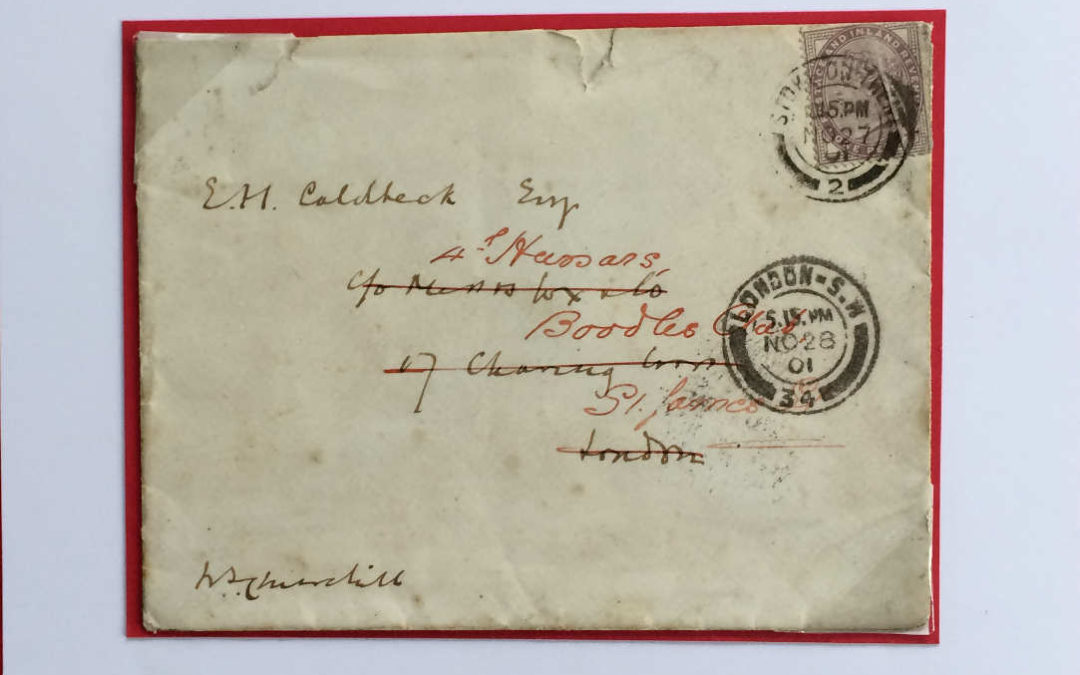 POSTAGE AND INLAND REVENUE
STOKE-ON-TRENT
PM
NO 27
01
2
E.H. Caldbeck Esq
4th Hussars
c/o Messrs Cox & Co
LONDON-S.W
5.15.PM
NO 28
01
34
Boodles Club
17 Charing Cross
St. James
London
WS Churchill